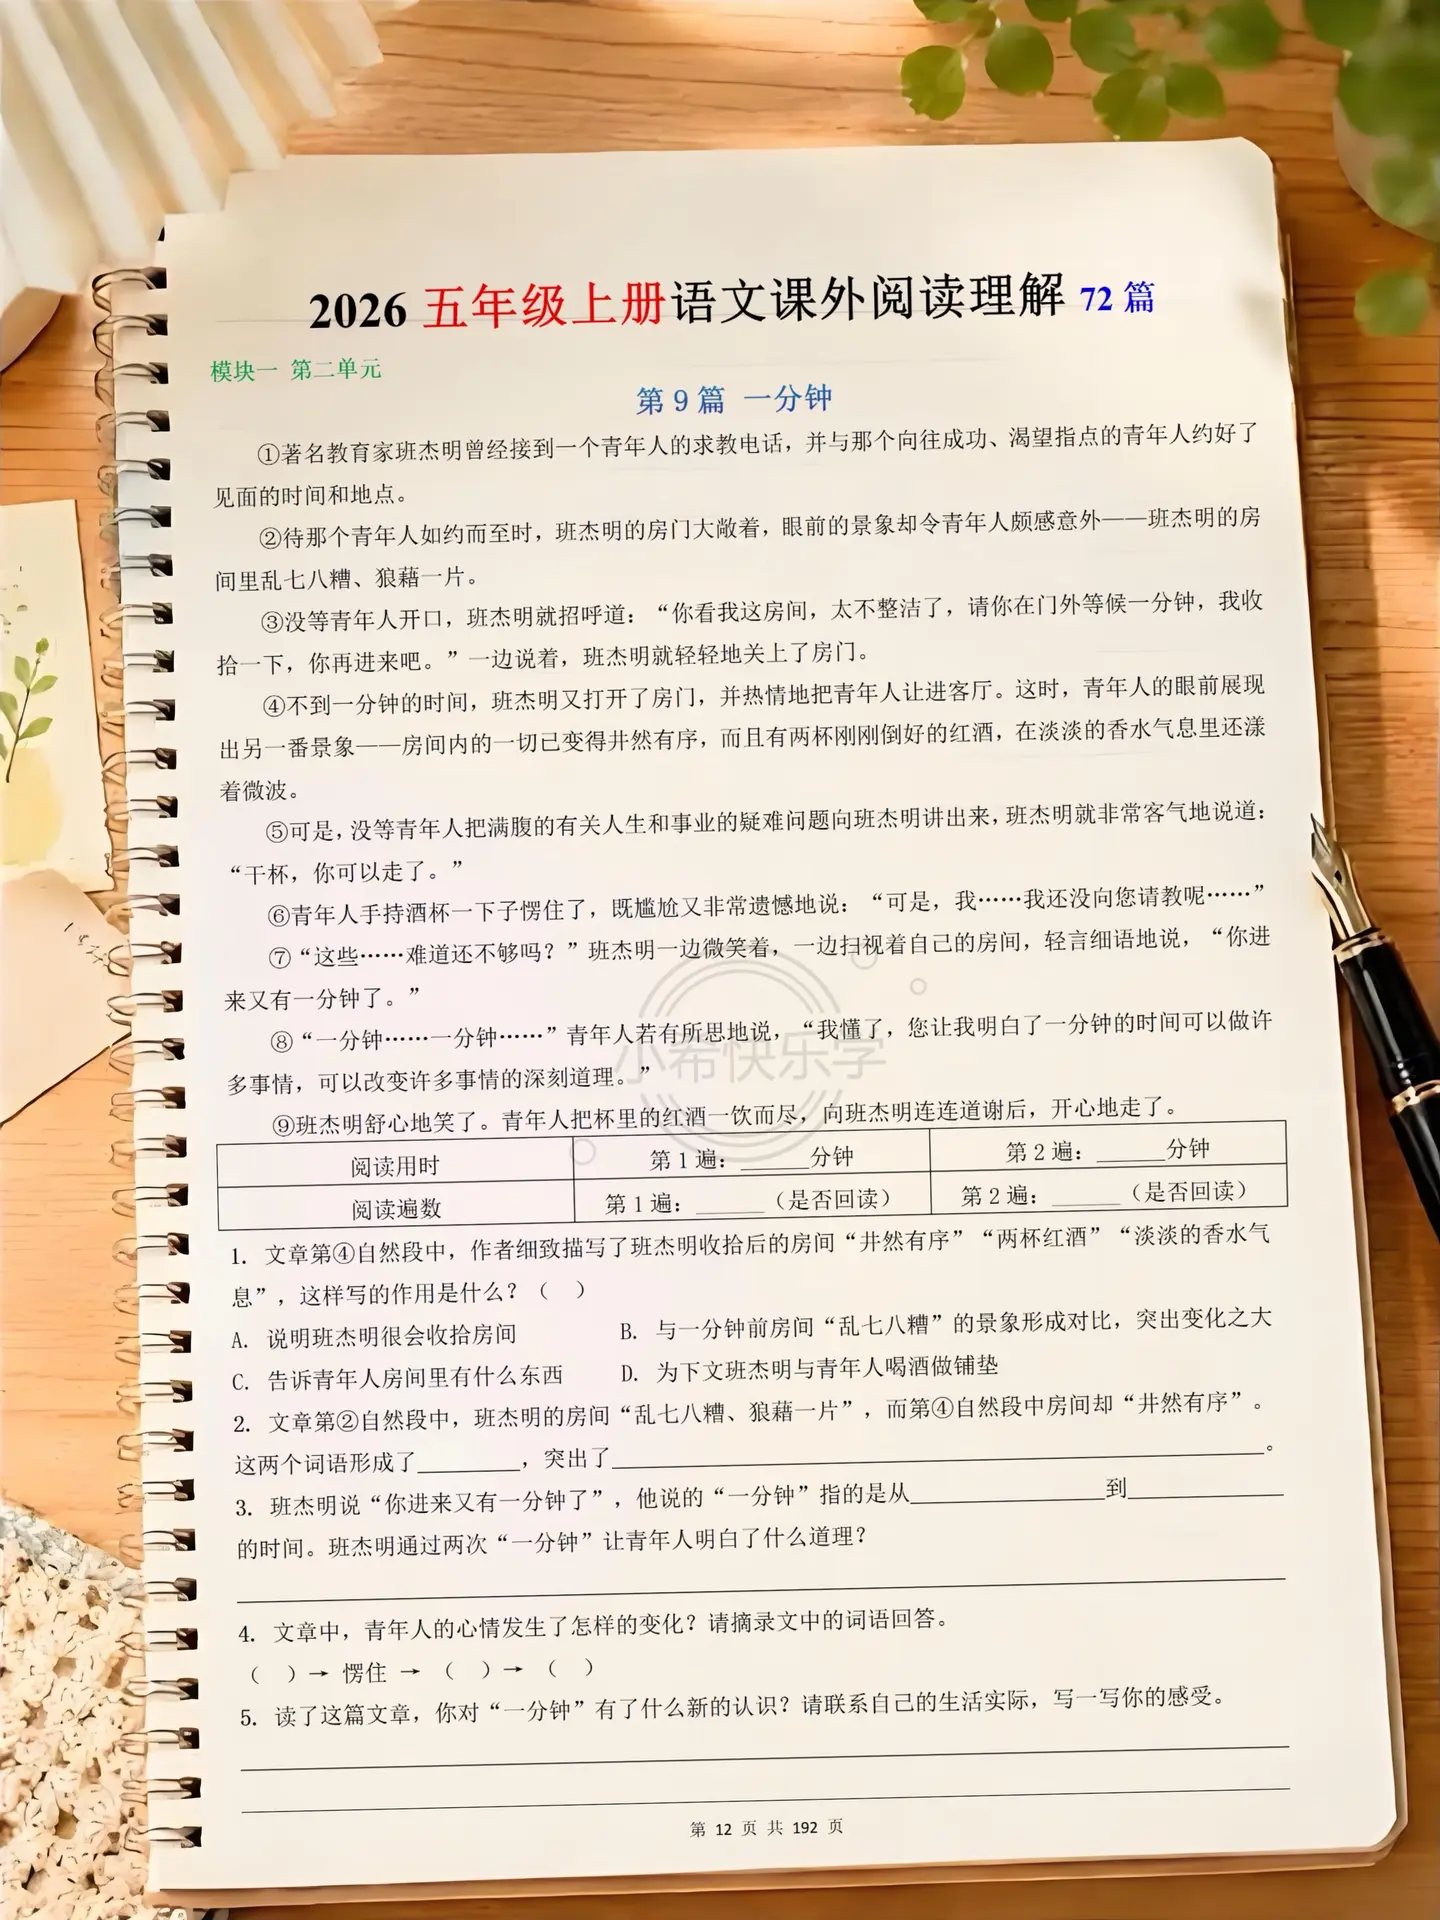 2026 五年级上册语文课外阅读理解 72 篇
模块一 第二单元
第 9 篇 一分钟
①著名教育家班杰明曾经接到一个青年人的求教电话，并与那个向往成功、渴望指点的青年人约好了
见面的时间和地点。
②待那个青年人如约而至时，班杰明的房门大敞着，眼前的景象却令青年人颇感意外——班杰明的房
间里乱七八糟、狼藉一片。
③没等青年人开口，班杰明就招呼道：“你看我这房间，太不整洁了，请你在门外等候一分钟，我收
拾一下，你再进来吧。”一边说着，班杰明就轻轻地关上了房门。
④不到一分钟的时间，班杰明又打开了房门，并热情地把青年人让进客厅。这时，青年人的眼前展现
出另一番景象——房间内的一切已变得井然有序，而且有两杯刚刚倒好的红酒，在淡淡的香水气息里还漾
着微波。
⑤可是，没等青年人把满腹的有关人生和事业的疑难问题向班杰明讲出来，班杰明就非常客气地说道：
“干杯，你可以走了。”
⑥青年人手持酒杯一下子愣住了，既尴尬又非常遗憾地说：“可是，我……我还没向您请教呢……”
⑦“这些……难道还不够吗？”班杰明一边微笑着，一边扫视着自己的房间，轻言细语地说，“你进
来又有一分钟了。”
⑧“一分钟……一分钟……”青年人若有所思地说，“我懂了，您让我明白了一分钟的时间可以做许
多事情，可以改变许多事情的深刻道理。”
⑨班杰明舒心地笑了。青年人把杯里的红酒一饮而尽，向班杰明连连道谢后，开心地走了。
小希快乐学
阅读用时 第 1 遍：______分钟 第 2 遍：______分钟
阅读遍数 第 1 遍：______（是否回读） 第 2 遍：______（是否回读）
1. 文章第④自然段中，作者细致描写了班杰明收拾后的房间“井然有序”“两杯红酒”“淡淡的香水气
息”，这样写的作用是什么？（ ）
A. 说明班杰明很会收拾房间 B. 与一分钟前房间“乱七八糟”的景象形成对比，突出变化之大
C. 告诉青年人房间里有什么东西 D. 为下文班杰明与青年人喝酒做铺垫
2. 文章第②自然段中，班杰明的房间“乱七八糟、狼藉一片”，而第④自然段中房间却“井然有序”。
这两个词语形成了________，突出了________________________________。
3. 班杰明说“你进来又有一分钟了”，他说的“一分钟”指的是从________________到____________
的时间。班杰明通过两次“一分钟”让青年人明白了什么道理？
4. 文章中，青年人的心情发生了怎样的变化？请摘录文中的词语回答。
（ ）→ 愣住 → （ ）→ （ ）
5. 读了这篇文章，你对“一分钟”有了什么新的认识？请联系自己的生活实际，写一写你的感受。
第 12 页 共 192 页